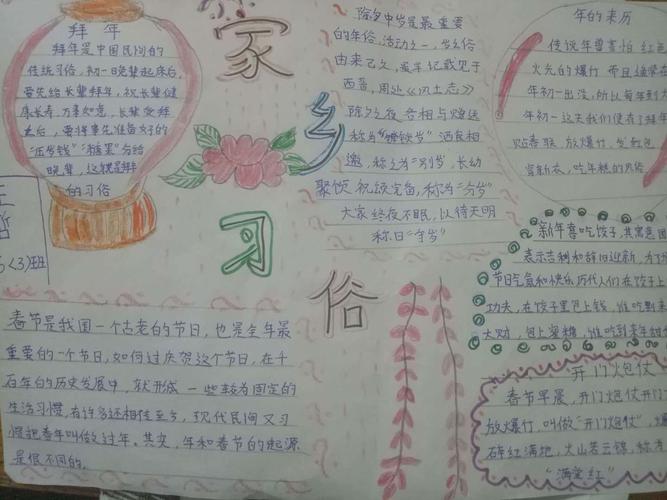 家乡习俗
拜年
拜年是中国民间的
传统习俗,初一晚辈起床后,
要先给长辈拜年,祝长辈健
康长寿,万事如意,长辈受拜
之后,要将事先准备好的
“压岁钱”“糖果”分给
晚辈,这就是拜
的习俗
(3)班
春节是我国一个古老的节日,也是全年最
重要的一个节日,如何过庆贺这个节日,在千
百年的历史发展中,就形成一些较为固定的
生活习惯,有许多还相传至今,现代民间又习
惯把春年叫做过年。其实,年和春节的起源
是很不同的。
除夕守岁是最重要
的年俗活动之一,守岁俗
由来已久,最早记载见于
西晋,周处《风土志》
除夕之夜各相与赠送
称为“馈岁”酒食相
邀,称之为“别岁”,长幼
聚饮祝颂完备,称为“分岁”
大家终夜不眠,以待天明
称曰“守岁”
年的来历
传说年兽害怕红色
火光的爆竹而且通常在
年初一出没,所以每年到大
年初一这天我们便有了拜年
贴春联,放爆竹,发红包
穿新衣,吃年糕的风俗
新年喜吃饺子,其寓意团
表示吉利和辞旧迎新,为了
节日气氛和快乐历代人们在饺子
功夫,在饺子里包上钱,谁吃到来
大财,包上蜜糖,谁吃到来年甜
开门炮仗
春节早晨,开门炮仗开门
放爆竹,叫做“开门炮仗”,爆
碎红满地,灿若云锦,称为
“满堂红”